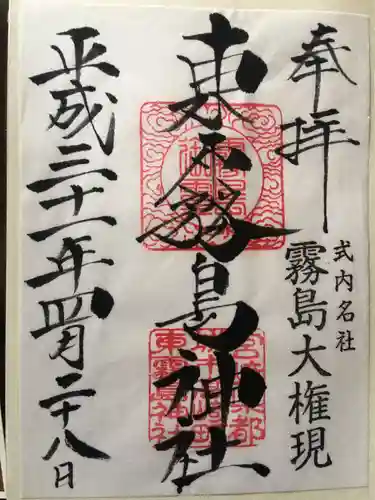 奉拝
式内名社
霧島大権現
東霧島神社
東霧島神社
平成三十一年四月二十八日